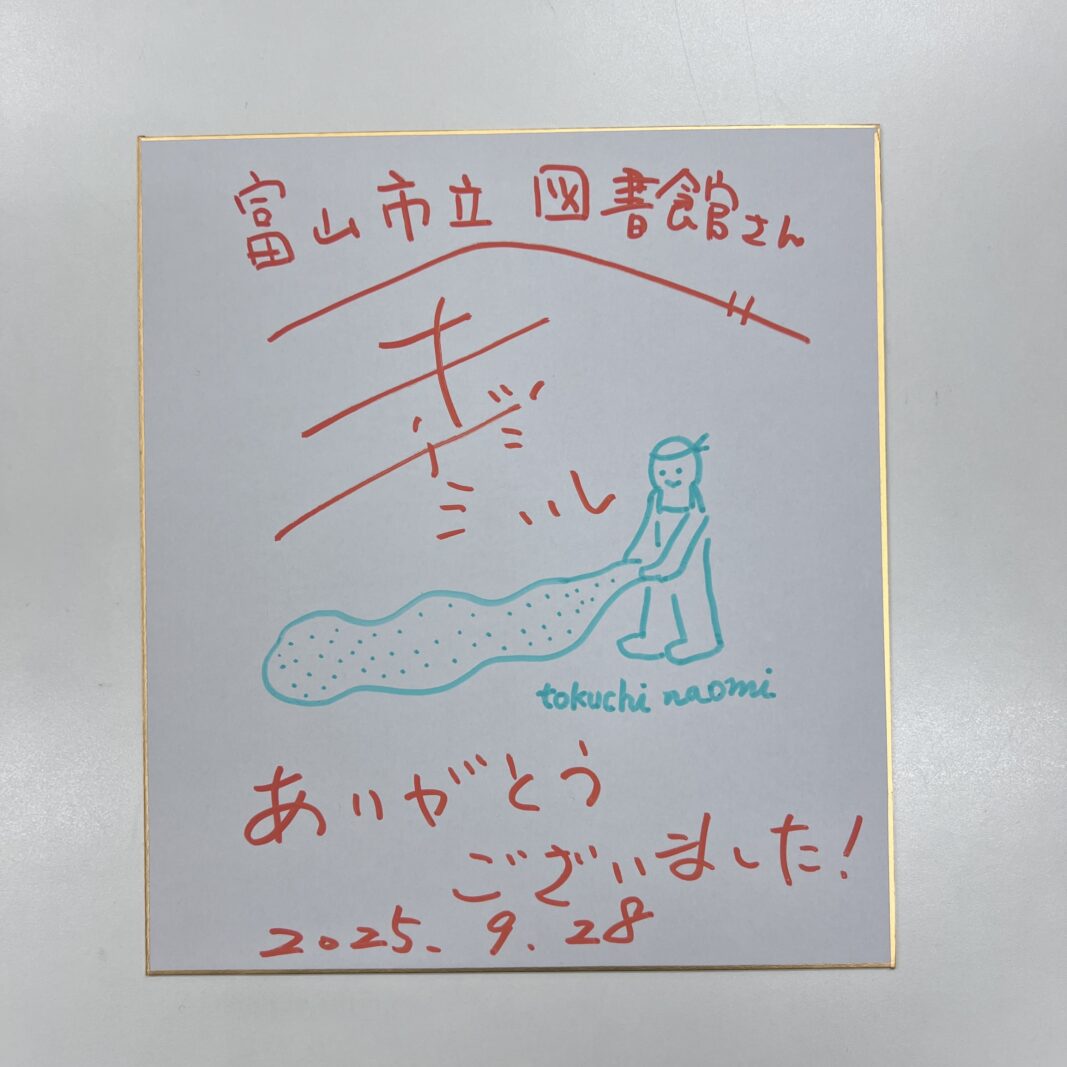 富山市立図書館さん
tokuchi naomi
ありがとう
ございました!
2025.9.28